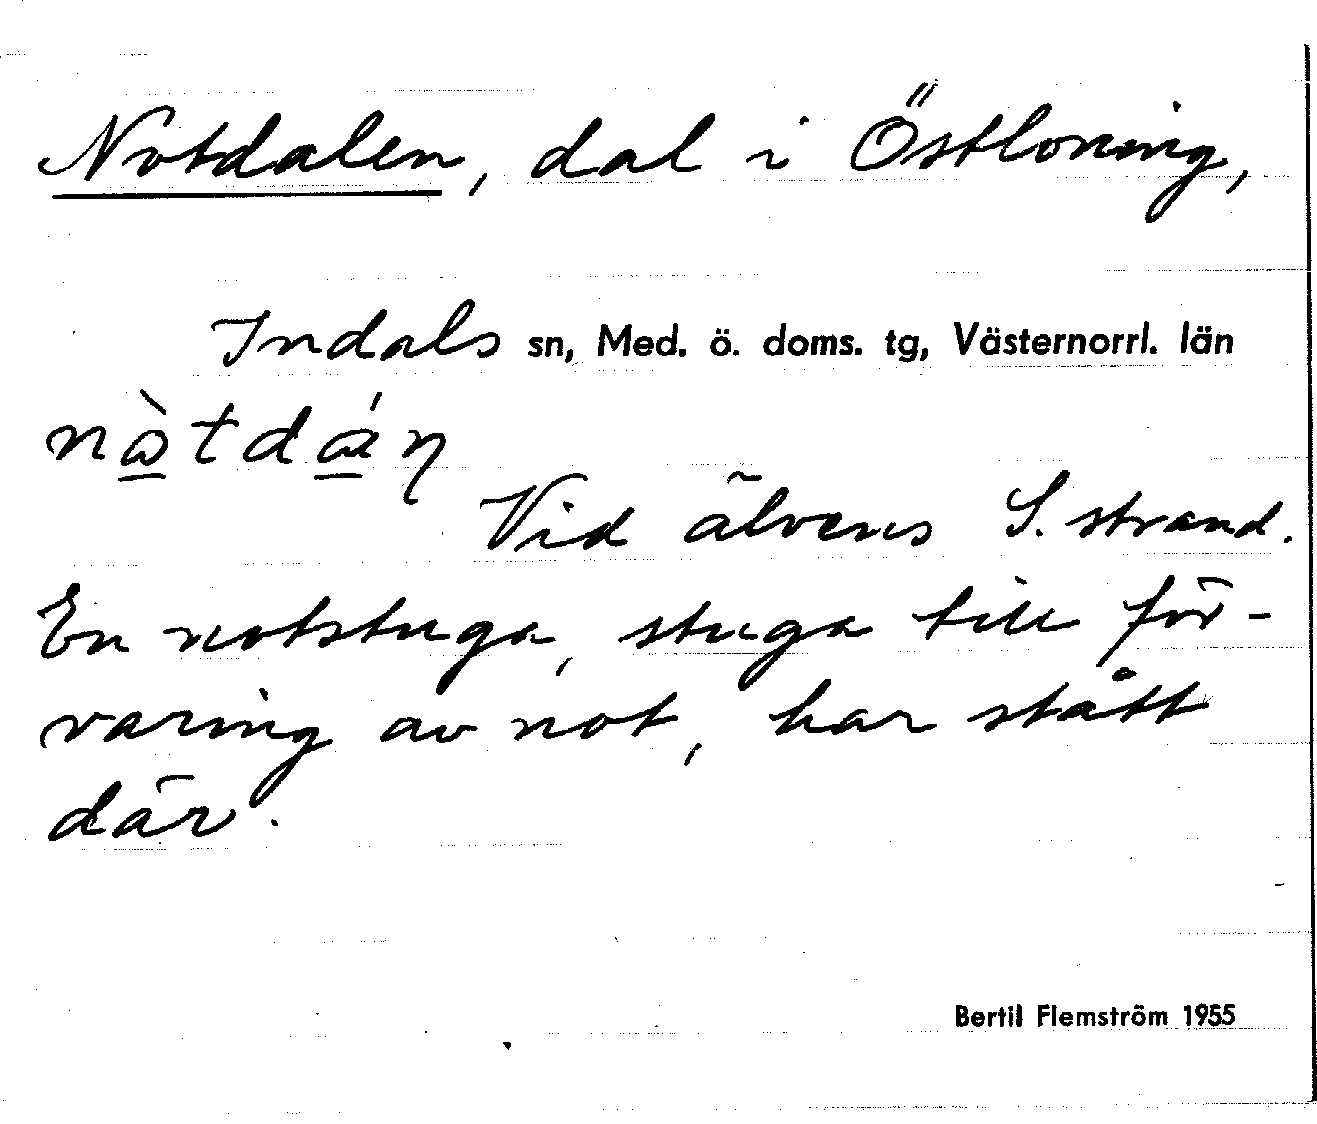 Notdalen, dal i Östloning,
Indals sn, Med. ö. doms. tg, Västernorrl. län
Vid älvens S. strand.
En notstuga, stuga till för-
varing av not, har stått
där.
Bertil Flemström 1955